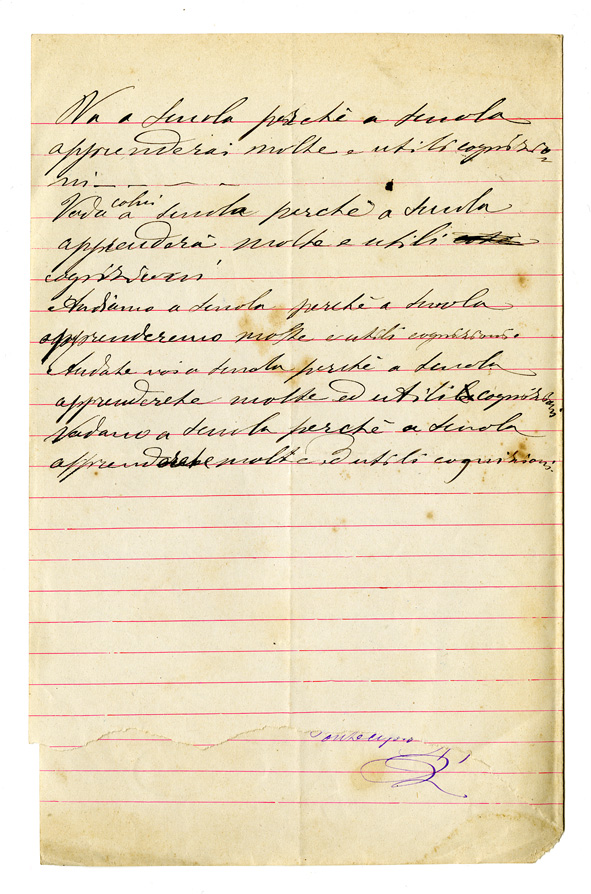 Va a scuola perchè a scuola
apprenderai molte e utili cognizio=
ni
Vada colui a scuola perchè a scuola
apprenderà molte e utili
cognizioni
Andiamo a scuola perchè a scuola
apprenderemo molte e utili cognizioni.
Andate voi a scuola perchè a scuola
apprenderete molte ed utili cognizioni
Vadano a scuola perchè a scuola
apprenderete molte ed utili cognizioni.